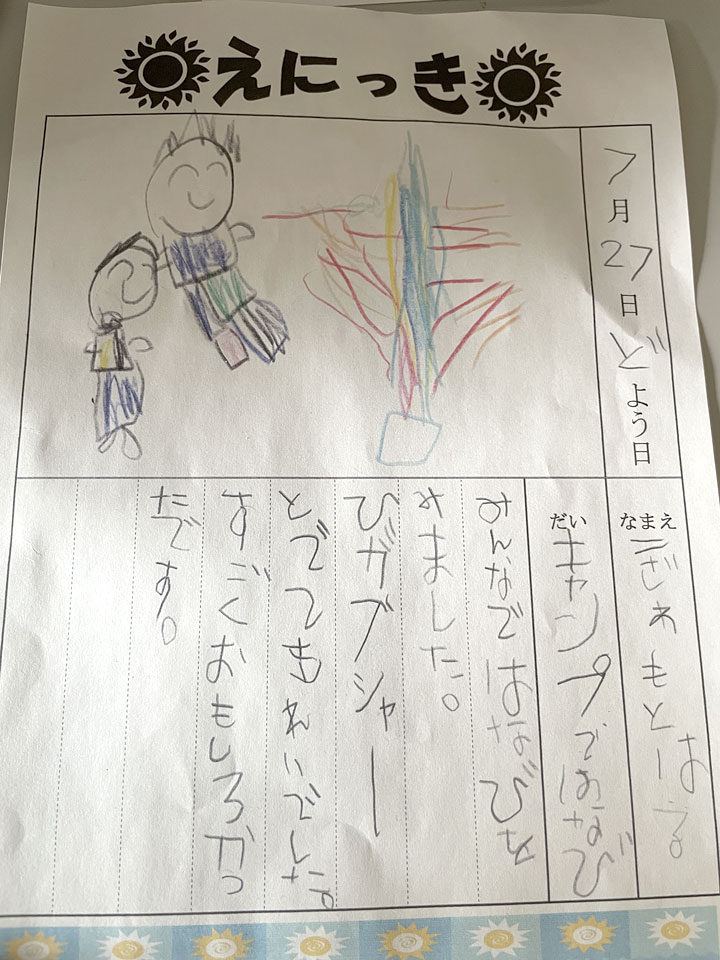 えにっき
7月27日どよう日
なまえ
だい キャンプではなび
みんなではなびを
みました。
びがブシャー
とでてもれいでした。
すごくおもしろかっ
たです。